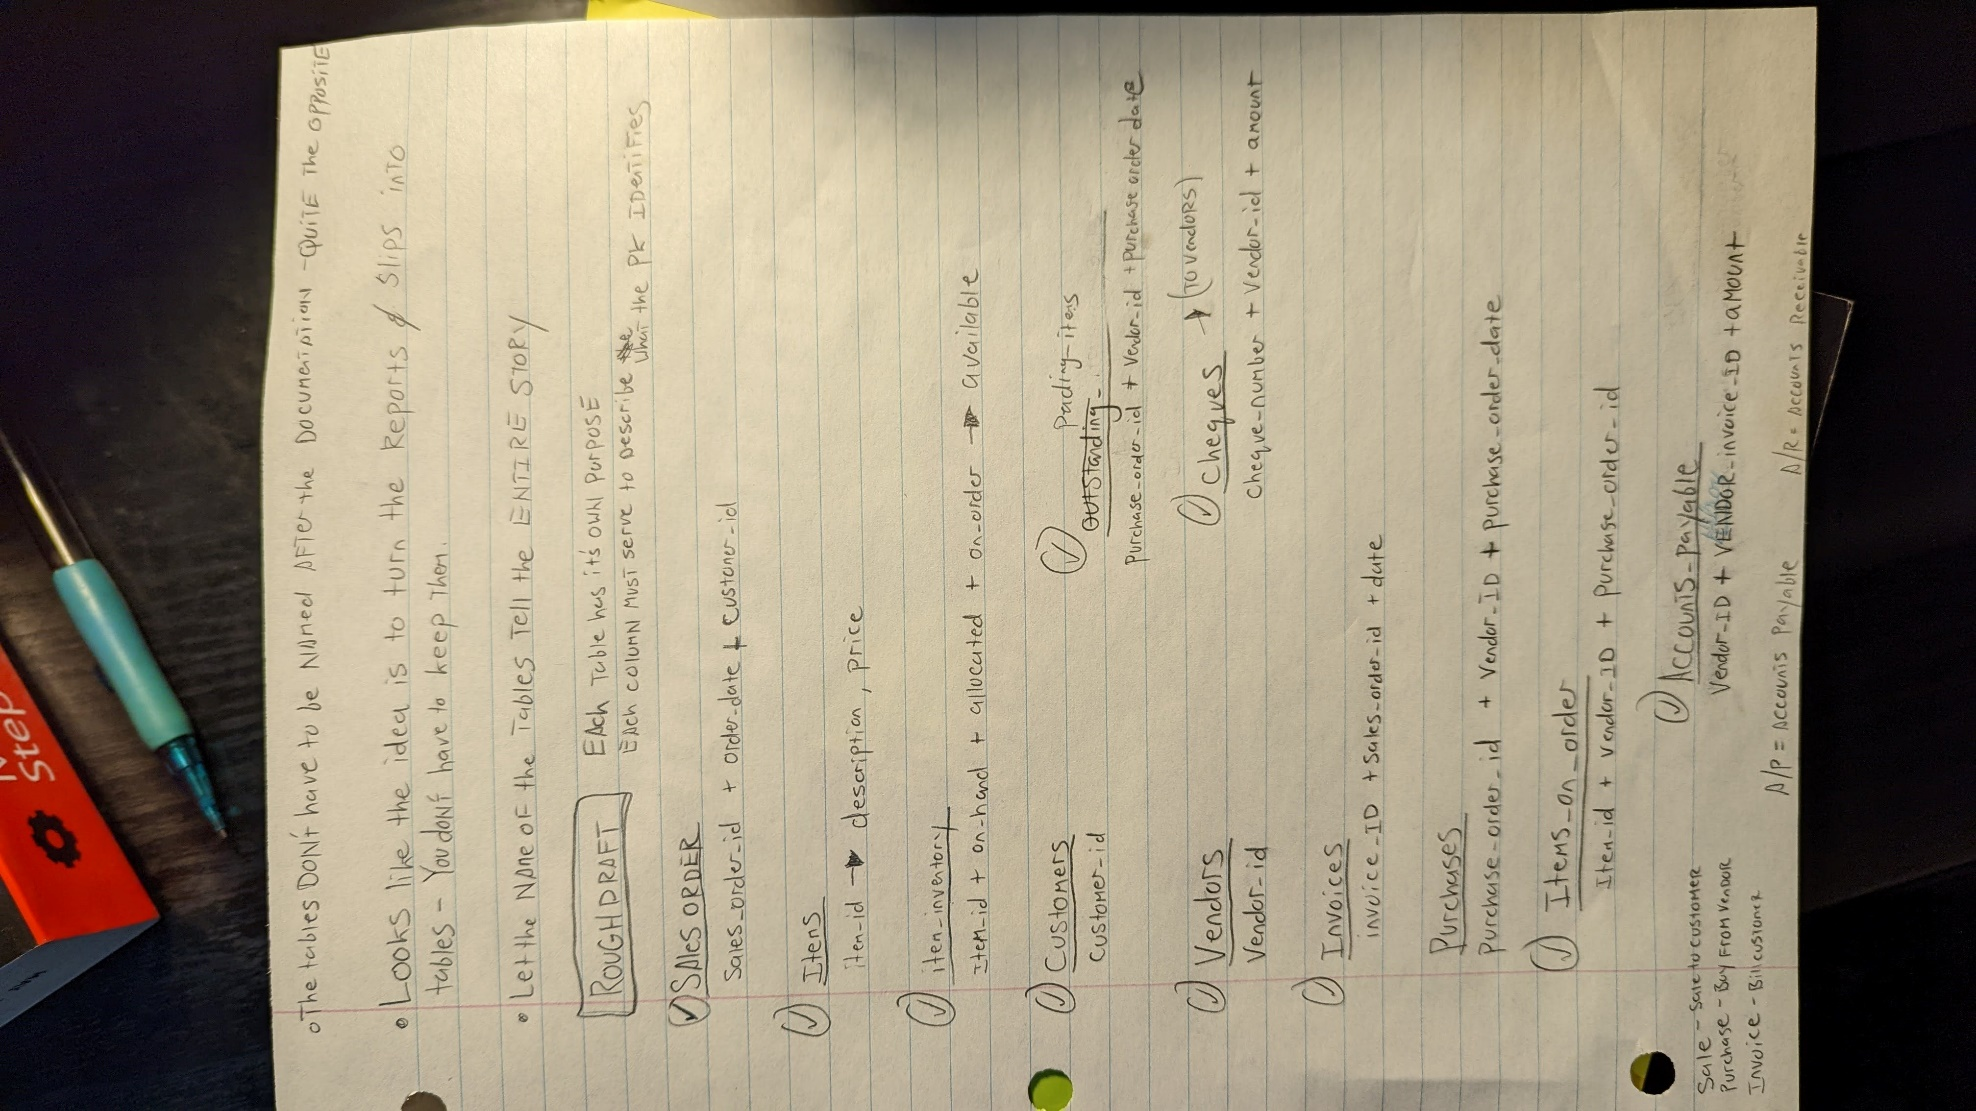 o The tables DON't have to be NAMED AFTER the DOCUMENTATION - QUITE The OPPOSITE
• Looks like the idea is to turn the Reports & Slips into
tables - You don't have to keep them.
• Let the NAME OF the Tables Tell the ENTIRE STORY
ROUGH DRAFT
EACh Table has it's own PURPOSE
EACh COLUMN MUST serve to Describe the what the PK IDentifies
SAles ORDER
Sales_order_id + order_date + customer_id
Items
item_id → description, price
item_inventory
Item_id + on_hand + allocated + on_order → available
Customers
customer_id
pending_items
OUTStanding_
purchase_order_id + vendor_id + purchase order date
Vendors
Vendor_id
cheques → (TO VENDORS)
cheque_number + Vendor_id + amount
Invoices
invoice_ID + sales_order_id + date
Purchases
Purchase_order_id + Vendor_ID + purchase_order_date
Items_on_order
Item_id + vendor_ID + purchase_order_id
Accounts_payable
Vendor_ID + VENDOR_invoice_ID + aMOUNT
Sale - Sale to customer
Purchase - Buy From Vendor
Invoice - Bill customer
A/P = Accounts Payable
A/R = Accounts Receivable
Step